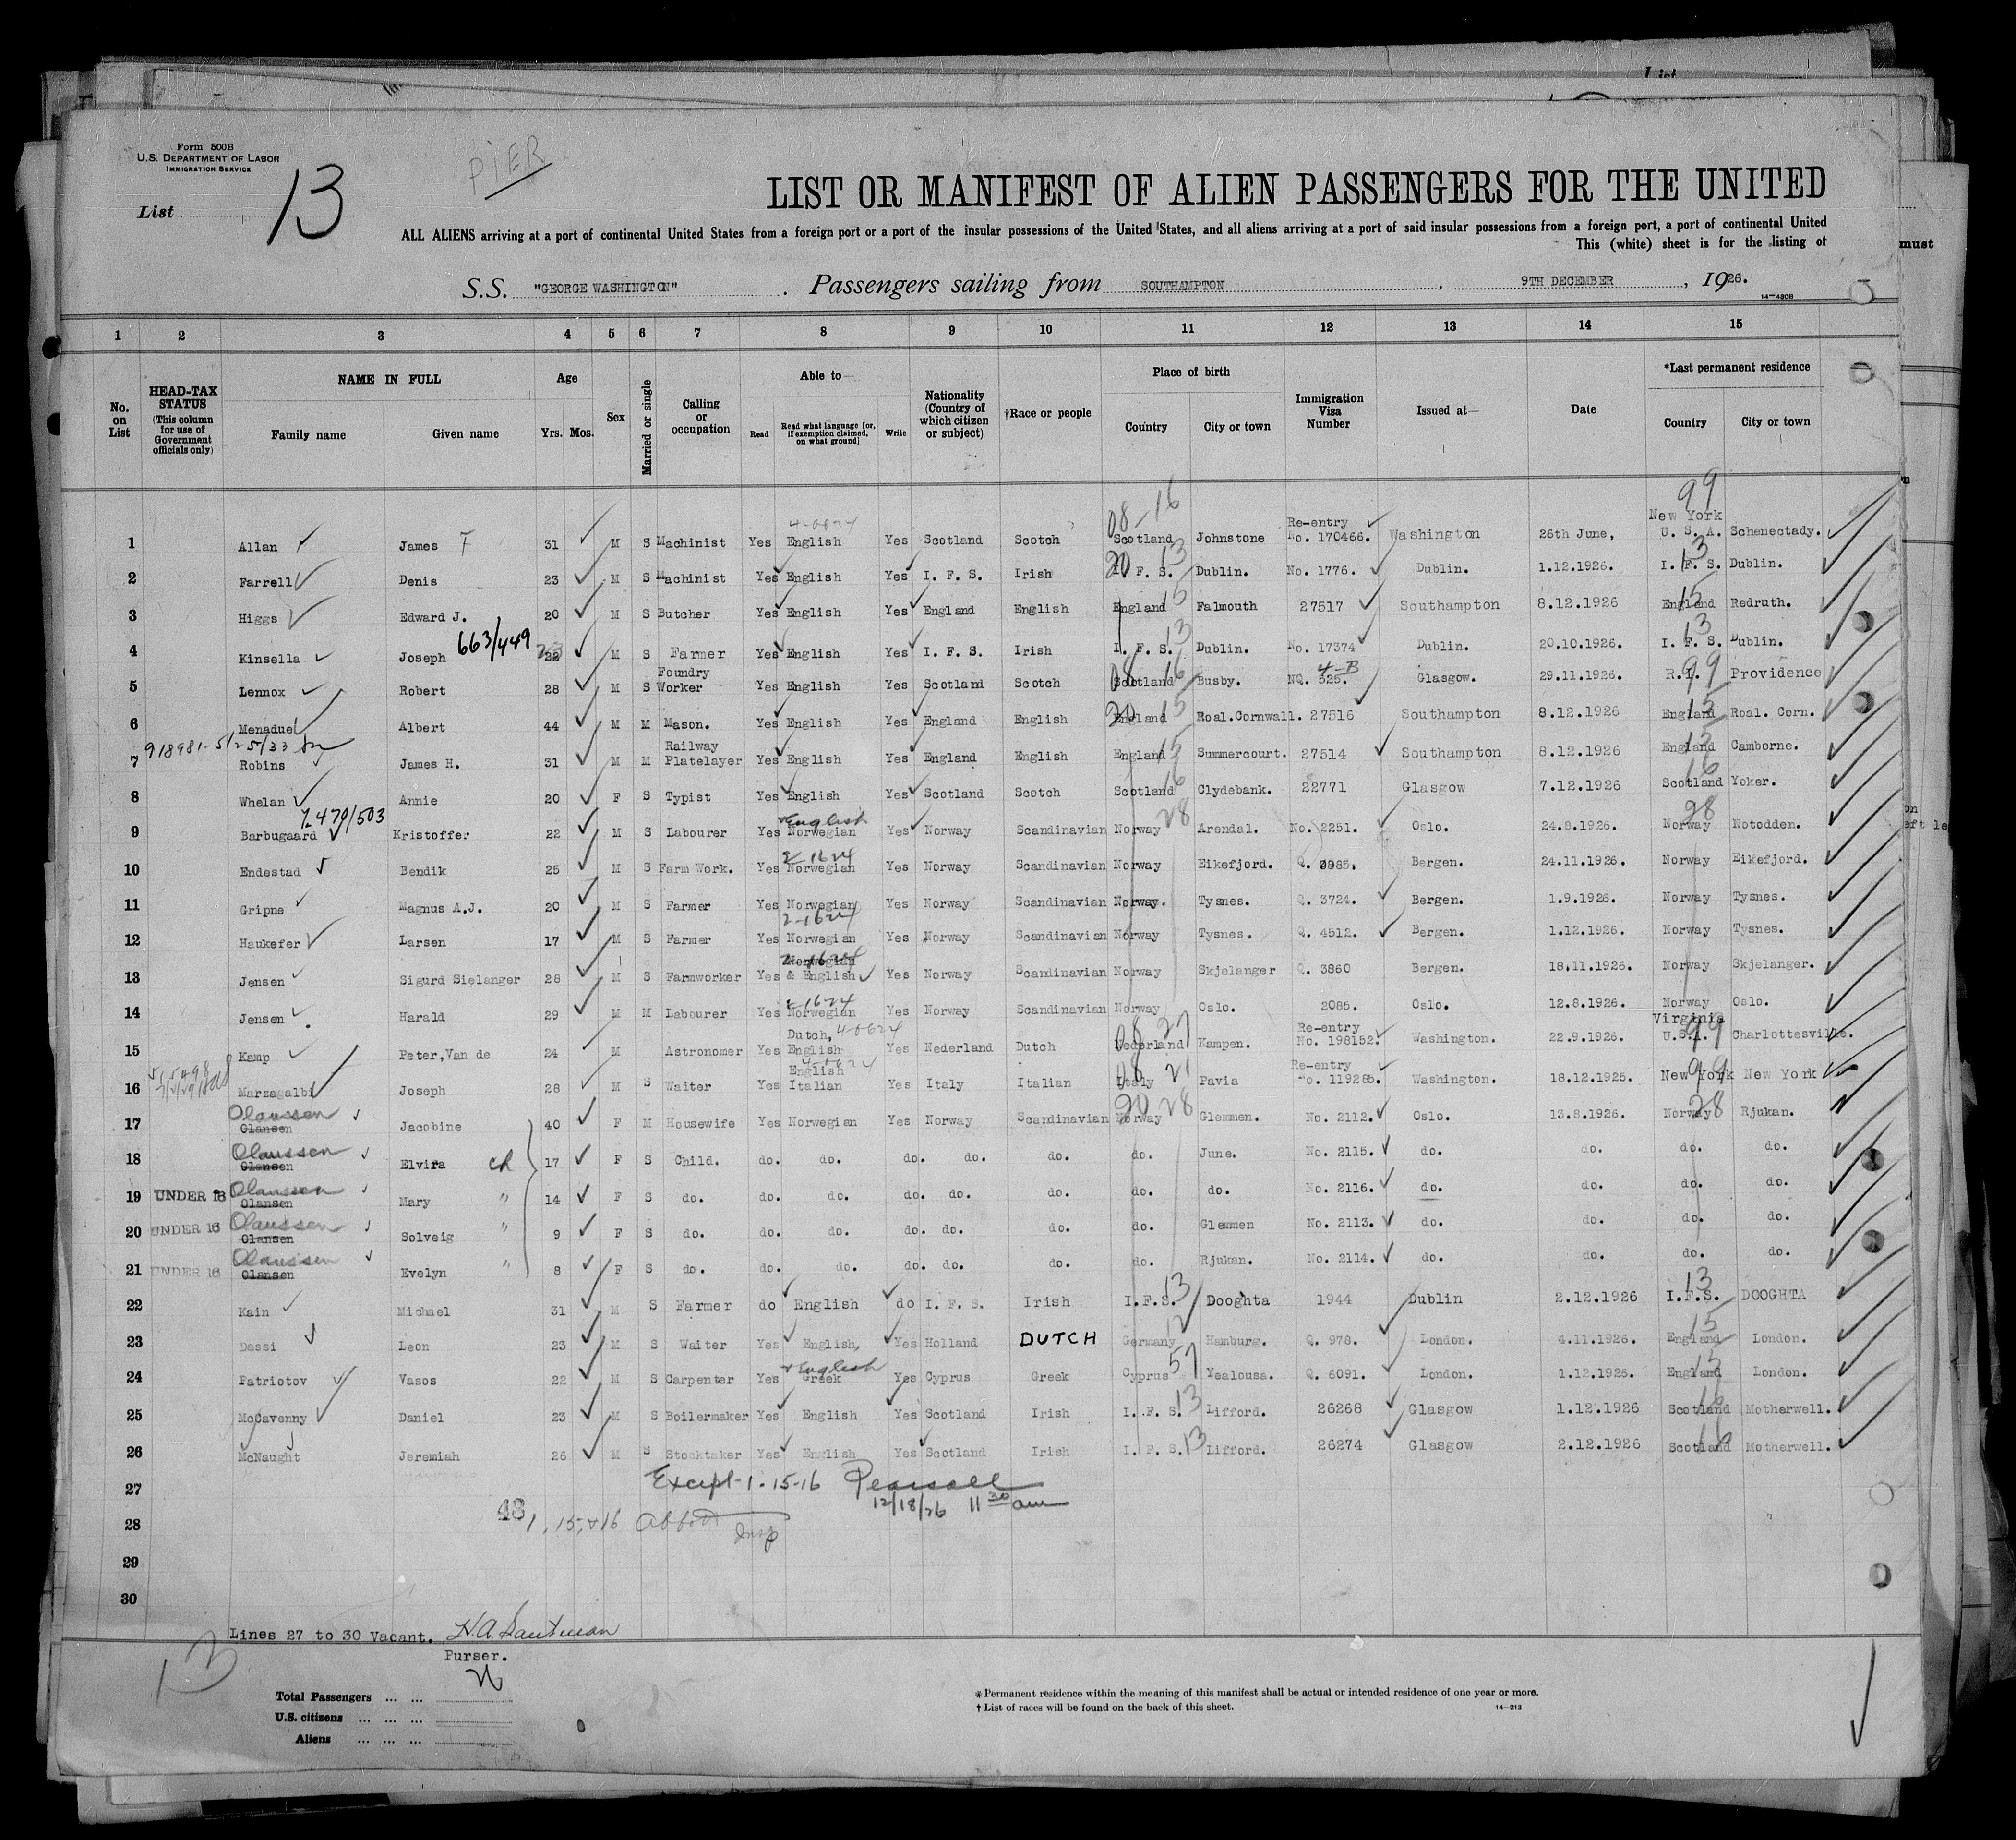 Form 500B
U.S. DEPARTMENT OF LABOR
IMMIGRATION SERVICE
PIER
List 13
LIST OR MANIFEST OF ALIEN PASSENGERS FOR THE UNITED
ALL ALIENS arriving at a port of continental United States from a foreign port or a part of the insular possessions of the United States, and all aliens arriving at a port of said insular possessions from a foreign port, a part of continental United
This (white) sheet is for the listing of
S.S. "GEORGE WASHINGTON" . Passengers sailing from SOUTHAMPTON , 9TH DECEMBER , 1926.
14-430B
1 2 3 4 5 6 7 8 9 10 11 12 13 14 15
No. on List HEAD-TAX STATUS (This column for use of Government officials only) NAME IN FULL Family name Given name Age Yrs. Mos. Sex Married or single Calling or occupation Able to— Read Read what language [or, if exemption claimed, on what ground] Write Nationality (Country of which citizen or subject) †Race or people Place of birth Country City or town Immigration Visa Number Issued at— Date *Last permanent residence Country City or town
1 Allan James F 31 M S Machinist Yes English Yes Scotland Scotch 08-16 Scotland Johnstone Re-entry No. 170466. Washington 26th June, 99 New York U. S. A. Schenectady.
2 Farrell Denis 23 M S Machinist Yes English Yes I. F. S. Irish 20 13 I. F. S. Dublin. No. 1776. Dublin. 1.12.1926. I. F. S. 13 Dublin.
3 Higgs Edward J. 20 M S Butcher Yes English Yes England English England 15 Falmouth 27517 Southampton 8.12.1926 England 15 Redruth.
4 Kinsella Joseph 663/449 22 M S Farmer Yes English Yes I. F. S. Irish I. F. S. 13 Dublin. No. 17374 Dublin. 20.10.1926. I. F. S. 13 Dublin.
5 Lennox Robert 28 M S Foundry Worker Yes English Yes Scotland Scotch 08 16 Scotland Busby. NQ. 525. 4-B Glasgow. 29.11.1926. R.I. 99 Providence
6 Menadue Albert 44 M M Mason. Yes English Yes England English 20 15 England Roal.Cornwall. 27516 Southampton 8.12.1926 England 15 Roal. Corn.
7 Robins James H. 31 M M Railway Platelayer Yes English Yes England English England 15 Summercourt. 27514 Southampton 8.12.1926 England 15 Camborne.
8 Whelan Annie 20 F S Typist Yes English Yes Scotland Scotch Scotland 16 Clydebank. 22771 Glasgow 7.12.1926 Scotland 16 Yoker.
9 Barbugaard 7-470/503 Kristoffer 22 M S Labourer Yes Norwegian English Yes Norway Scandinavian Norway 28 Arendal. No. 2251. Oslo. 24.8.1926. Norway 28 Notodden.
10 Endestad Bendik 25 M S Farm Work. Yes Norwegian 2-1624 Yes Norway Scandinavian Norway Eikefjord. Q. 3985. Bergen. 24.11.1926. Norway Eikefjord.
11 Gripne Magnus A.J. 20 M S Farmer Yes Norwegian Yes Norway Scandinavian Norway. Tysnes. Q. 3724. Bergen. 1.9.1926. Norway Tysnes.
12 Haukefer Larsen 17 M S Farmer Yes Norwegian 2-1624 Yes Norway Scandinavian Norway Tysnes. Q. 4512. Bergen. 1.12.1926. Norway Tysnes.
13 Jensen Sigurd Sielanger 28 M S Farmworker Yes Norwegian & English Yes Norway Scandinavian Norway Skjelanger Q. 3860 Bergen. 18.11.1926. Norway Skjelanger.
14 Jensen Harald 29 M M Labourer Yes Norwegian 2-1624 Yes Norway Scandinavian Norway Oslo. 2085. Oslo. 12.8.1926. Norway Oslo.
15 Kamp Peter,Van de 24 M Astronomer Yes Dutch, English Yes Nederland Dutch 08 27 Nederland Kampen. Re-entry No. 198152. Washington. 22.9.1926. Virginia U.S.A. 99 Charlottesville.
16 Marzagalbi Joseph 28 M S Waiter Yes English Italian Yes Italy Italian 08 21 Italy Pavia Re-entry No. 119285. Washington. 18.12.1925. New York 99 New York
17 Olaussen Olansen Jacobine 40 F M Housewife Yes Norwegian Yes Norway Scandinavian 20 28 Norway Glemmen. No. 2112. Oslo. 13.8.1926. Norway 28 Rjukan.
18 Olaussen Olansen Elvira ch 17 F S Child. do. do. do. do. do. do. June. No. 2115. do. do. do. do.
19 UNDER 16 Olaussen Olansen Mary " 14 F S do. do. do. do. do. do. do. do. No. 2116. do. do. do. do.
20 UNDER 16 Olaussen Olansen Solveig " 9 F S do. do. do. do. do. do. do. Glemmen No. 2113. do. do. do. do.
21 UNDER 16 Olaussen Olansen Evelyn " 8 F S do. do. do. do. do. do. do. Rjukan. No. 2114. do. do. do. do.
22 Kain Michael 31 M S Farmer do English do I. F. S. Irish I.F.S. 13 Dooghta 1944 Dublin 2.12.1926 I.F.S. 13 DOOGHTA
23 Dassi Leon 23 M S Waiter Yes English, Yes Holland DUTCH Germany Hamburg. Q. 978. London. 4.11.1926. England 15 London.
24 Patriotov Vasos 22 M S Carpenter Yes Greek English Yes Cyprus Greek Cyprus 57 Yealousa. Q. 6091. London. 1.12.1926. England 15 London.
25 McCavenny Daniel 23 M S Boilermaker Yes English Yes Scotland Irish I. F. S. 13 Lifford. 26268 Glasgow 1.12.1926 Scotland 16 Motherwell.
26 McNaught Jeremiah 26 M S Stocktaker Yes English Yes Scotland Irish I. F. S. 13 Lifford. 26274 Glasgow 2.12.1926 Scotland 16 Motherwell.
27 Except-1-15-16 Pearsall
12/18/26 11 30 am
28 48 1, 15, + 16 Abbott Insp
29
30
Lines 27 to 30 Vacant. H.A.
Purser.
13
Total Passengers ... ...
U.S. citizens ... ... ...
Aliens ... ... ...
* Permanent residence within the meaning of this manifest shall be actual or intended residence of one year or more.
† List of races will be found on the back of this sheet.
14-213